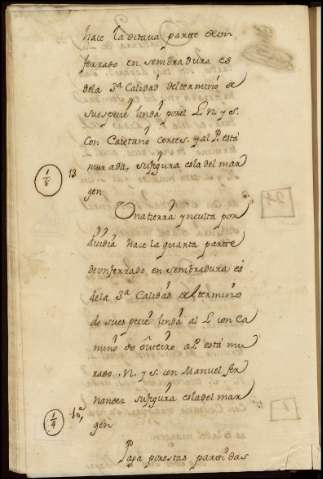 hace la octava parte de un
ferrado en sembradura es
dela 3ª Calidad del termino de
su especie linda por el L. N. y S.
con Caietano cortes. y al P. está
murada, su figura es la del mar
1/8 13
gen
Una tierra ynculta por
dividir hace la quarta parte
de un ferrado, en sembradura es
dela 3ª Calidad del termino
de su especie linda al L. con Ca
mino de al P. está mu
rado. N. y S. con Manuel fer
nandez su figura es la del mar
1/4
gen
Papa pies tas partidas